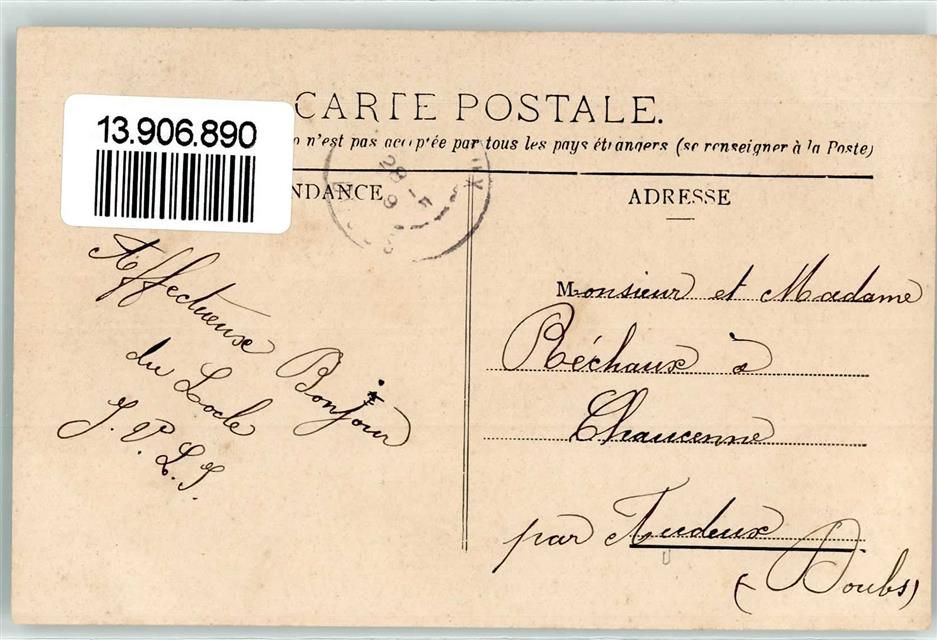 CARTE POSTALE.
13.906.890
n'est pas acceptée par tous les pays étrangers (se renseigner à la Poste)
NDANCE
ADRESSE
28 - 5
Affectueux Bonjour
du Locle
Monsieur et Madame
Réchaux à
Chaucenne
par Audeux
(Doubs)